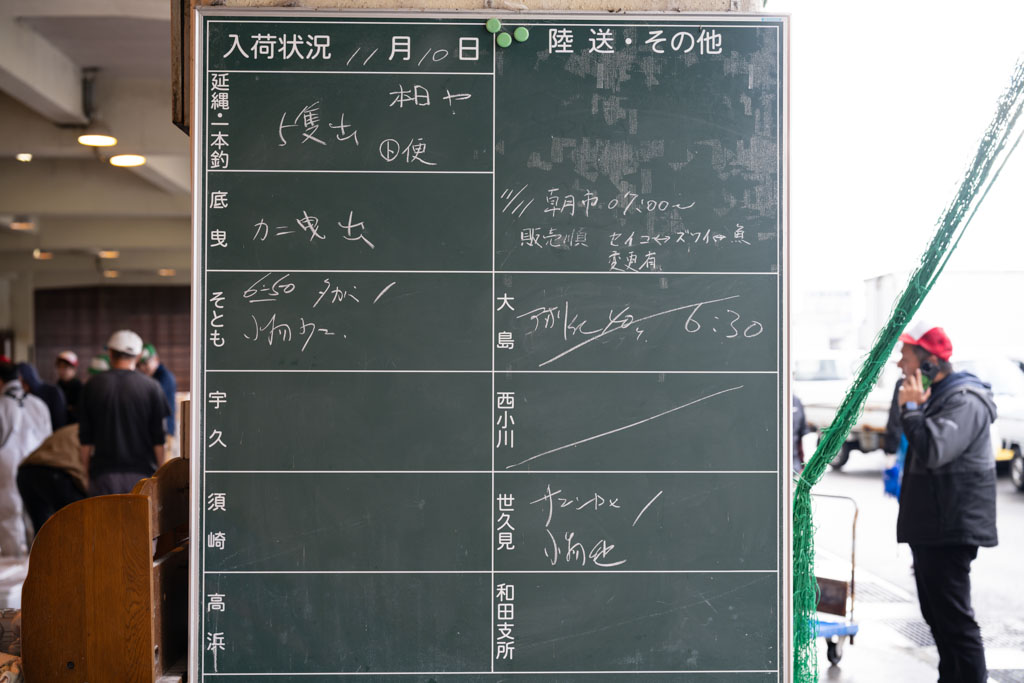 入荷状況 11月10日
陸送・その他
延縄・一本釣
本日や
5隻出
ト便
底曳
カニ曳出
11/11 朝市 07:00〜
販売順 セイコ↔ズワイ↔魚
変更有
そとも
6:50
小物
大島
6:30
宇久
西小川
須崎
世久見
小物也
高浜
和田支所